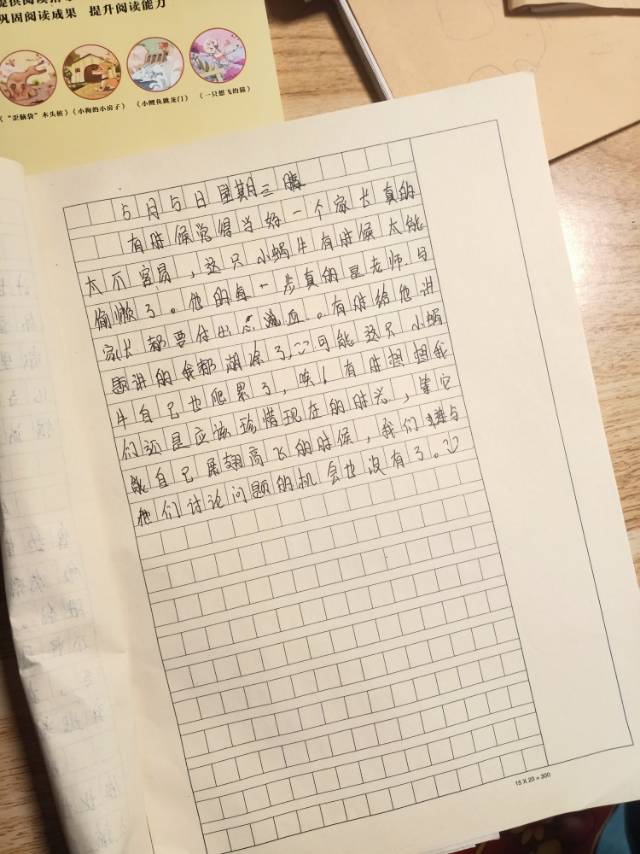 巩固阅读成果 提升阅读能力
《“歪脑袋”木头桩》《小狗的小房子》 《小鲤鱼跳龙门》 《一只想飞的猫》
5月5日星期三 晴
有时候觉得当好一个家长真的
太不容易，这只小蜗牛有时候太能
偷懒了。他的每一步真的是老师与
家长都要付出心血。有时给他讲
题讲的我都糊涂了，可能这只小蜗
牛自己也爬累了，唉！有时想想我
们还是应该珍惜现在的时光，等它
能自己展翅高飞的时候，我们连与
他们讨论问题的机会也没有了。
15 X 20 = 300